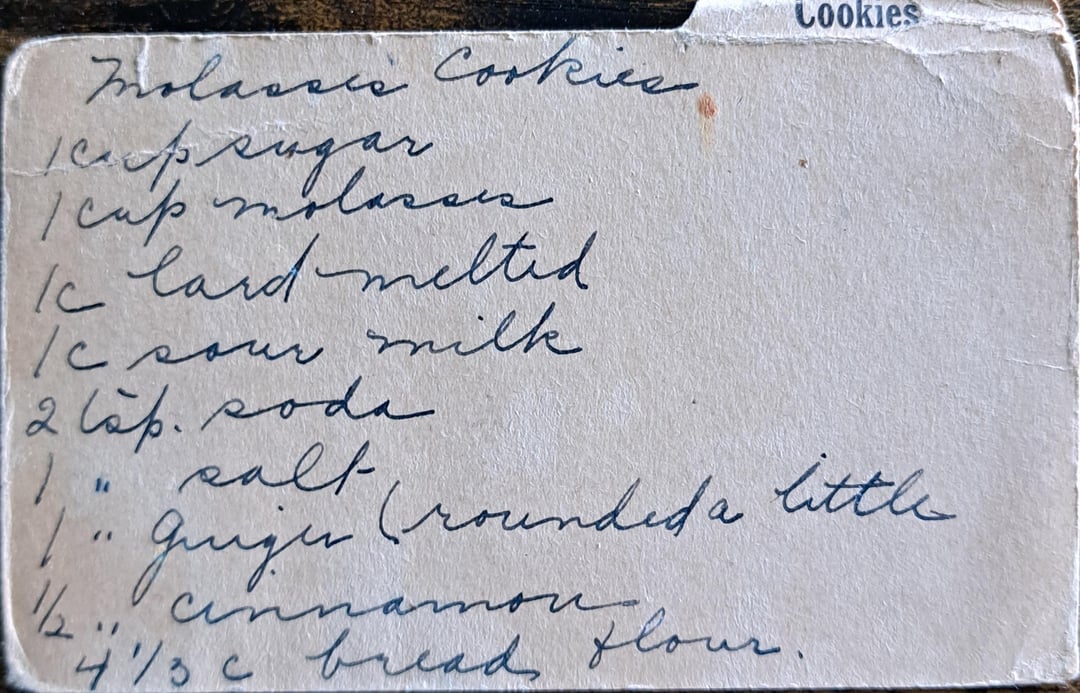 Cookies
Molasses Cookies
1 cup sugar
1 cup molasses
1c lard melted
1c sour milk
2 tsp. soda
1 " salt
1 " Ginger (rounded a little
1/2 " cinnamon
4 1/3 c bread flour.